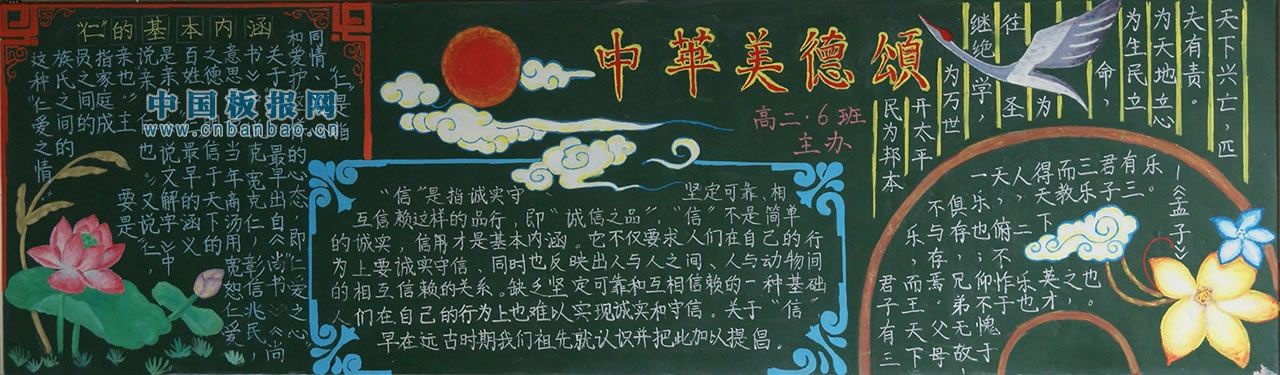 “仁”的基本内涵
“仁”是指
同情、
和爱护的心态,即“仁爱之心”
关于最早出自《尚书》《尚
书》克宽克仁,彰信兆民,
意思当年商汤用宽恕仁爱
之德信于天下的
百姓最早的涵义
是亲《说文解字》中
说亲仁也。”又说“仁,
亲也。”主要是
指家庭成
员之间的
族氏之间的
这种“仁爱之情”
中国板报网
www.cnbanbao.cn
中華美德頌
高二·6班
主办
“信”是指诚实守坚定可靠、相
互信赖这样的品行,即“诚信之品”。“信”不是简单
的诚实,信用才是基本内涵。它不仅要求人们在自己的行
为上要诚实守信、同时也反映出人与人之间、人与动物间
的相互信赖的关系。缺乏坚定可靠和互相信赖的一种基础
人们在自己的行为上也难以实现诚实和守信。关于“信”
早在远古时期我们祖先就认识并把此加以提昌。
天下兴亡,匹
夫有责。
为天地立心
为生民立
命,
为
往圣
继绝学,
为万世
开太平
民为邦本
君子有三
乐,而王天下
不与存焉。父母
俱存,兄弟无故
一乐也;仰不愧于
天,俯不怍于
人,二乐也,
得天下英才
而教之,
三乐也。
君子
有三
乐。
—《孟子》